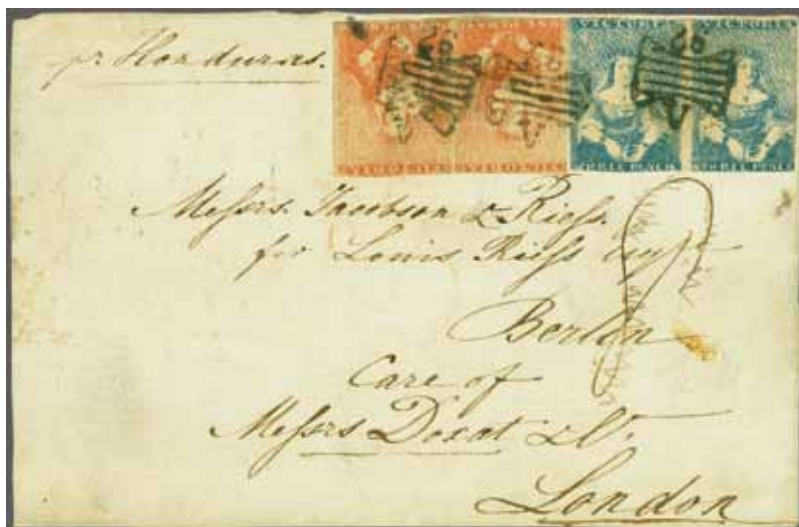 VICTORIA VICTORIA
pr Honduras.
VICTORIA VICTORIA THREE PENCE THREE PENCE
Messrs. Jacobson & Riess.
for Louis Riess Esqr
Berlin
Care of
Messrs Doxat & Co.
London